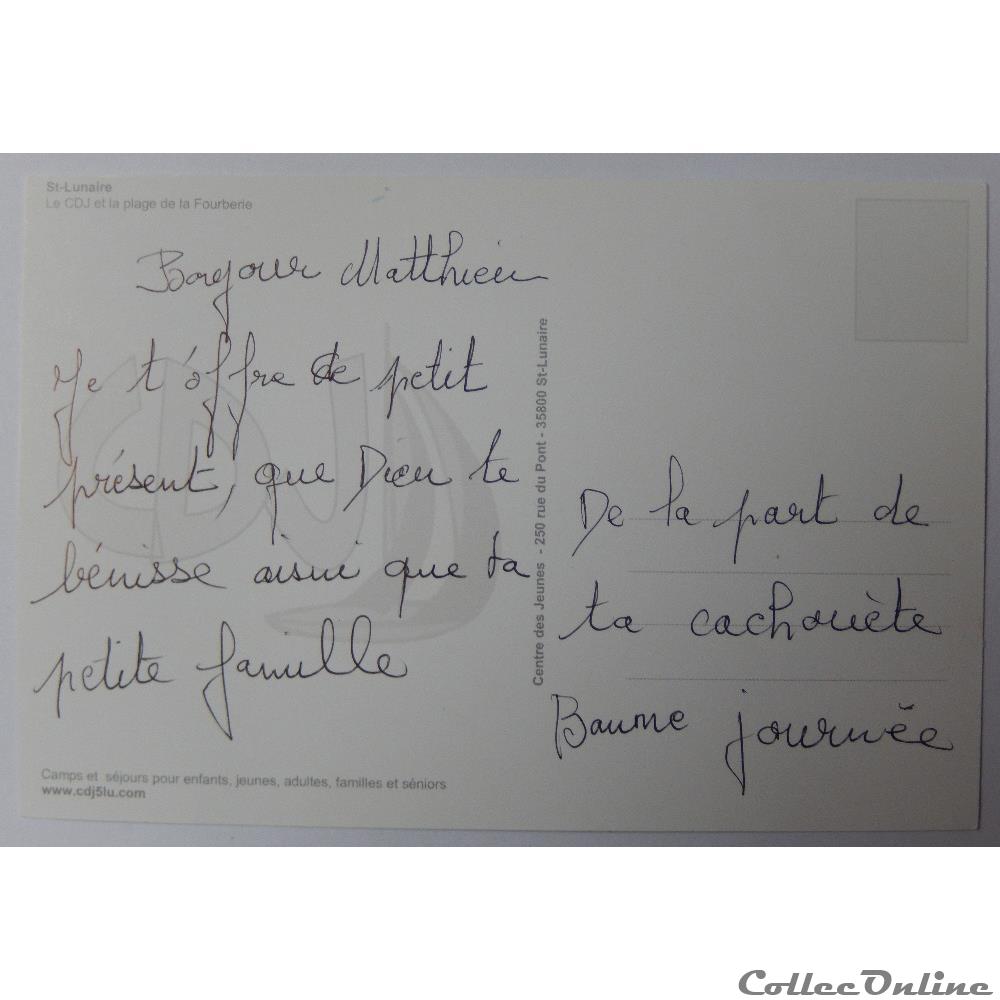 St-Lunaire
Le CDJ et la plage de la Fourberie
Bonjour Matthieu
Je t'offre ce petit
présent, que Dieu te
bénisse aisni que ta
petite famille
CDJ
Camps et séjours pour enfants, jeunes, adultes, familles et séniors
www.cdj5lu.com
Centre des Jeunes - 250 rue du Pont - 35800 St-Lunaire
De la part de
ta cachouète
Baume journée
CollecOnline